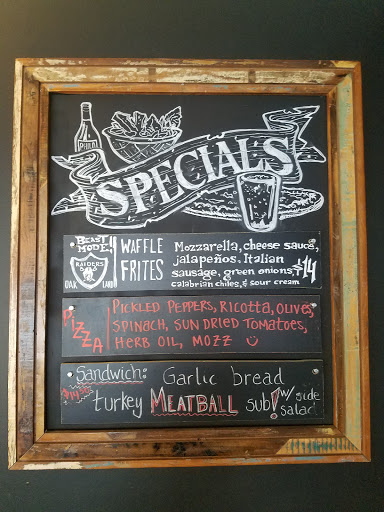 PHILO
SPECIALS
BEAST
MODE!
RAIDERS
OAK LAND
WAFFLE
FRITES
Mozzarella, cheese sauce,
jalapeños, Italian
sausage, green onions $14
calabrian chiles, & sour cream
PIZZA
PICKLED PEPPERS, RICOTTA, OLIVES,
SPINACH, SUN DRIED TOMATOES,
HERB OIL, MOZZ
Sandwich: Garlic bread
turkey MEATBALL sub! w/ side
salad